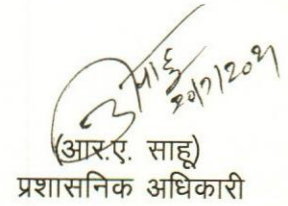 साहू
20/7/2021
(आर.ए. साहू)
प्रशासनिक अधिकारी